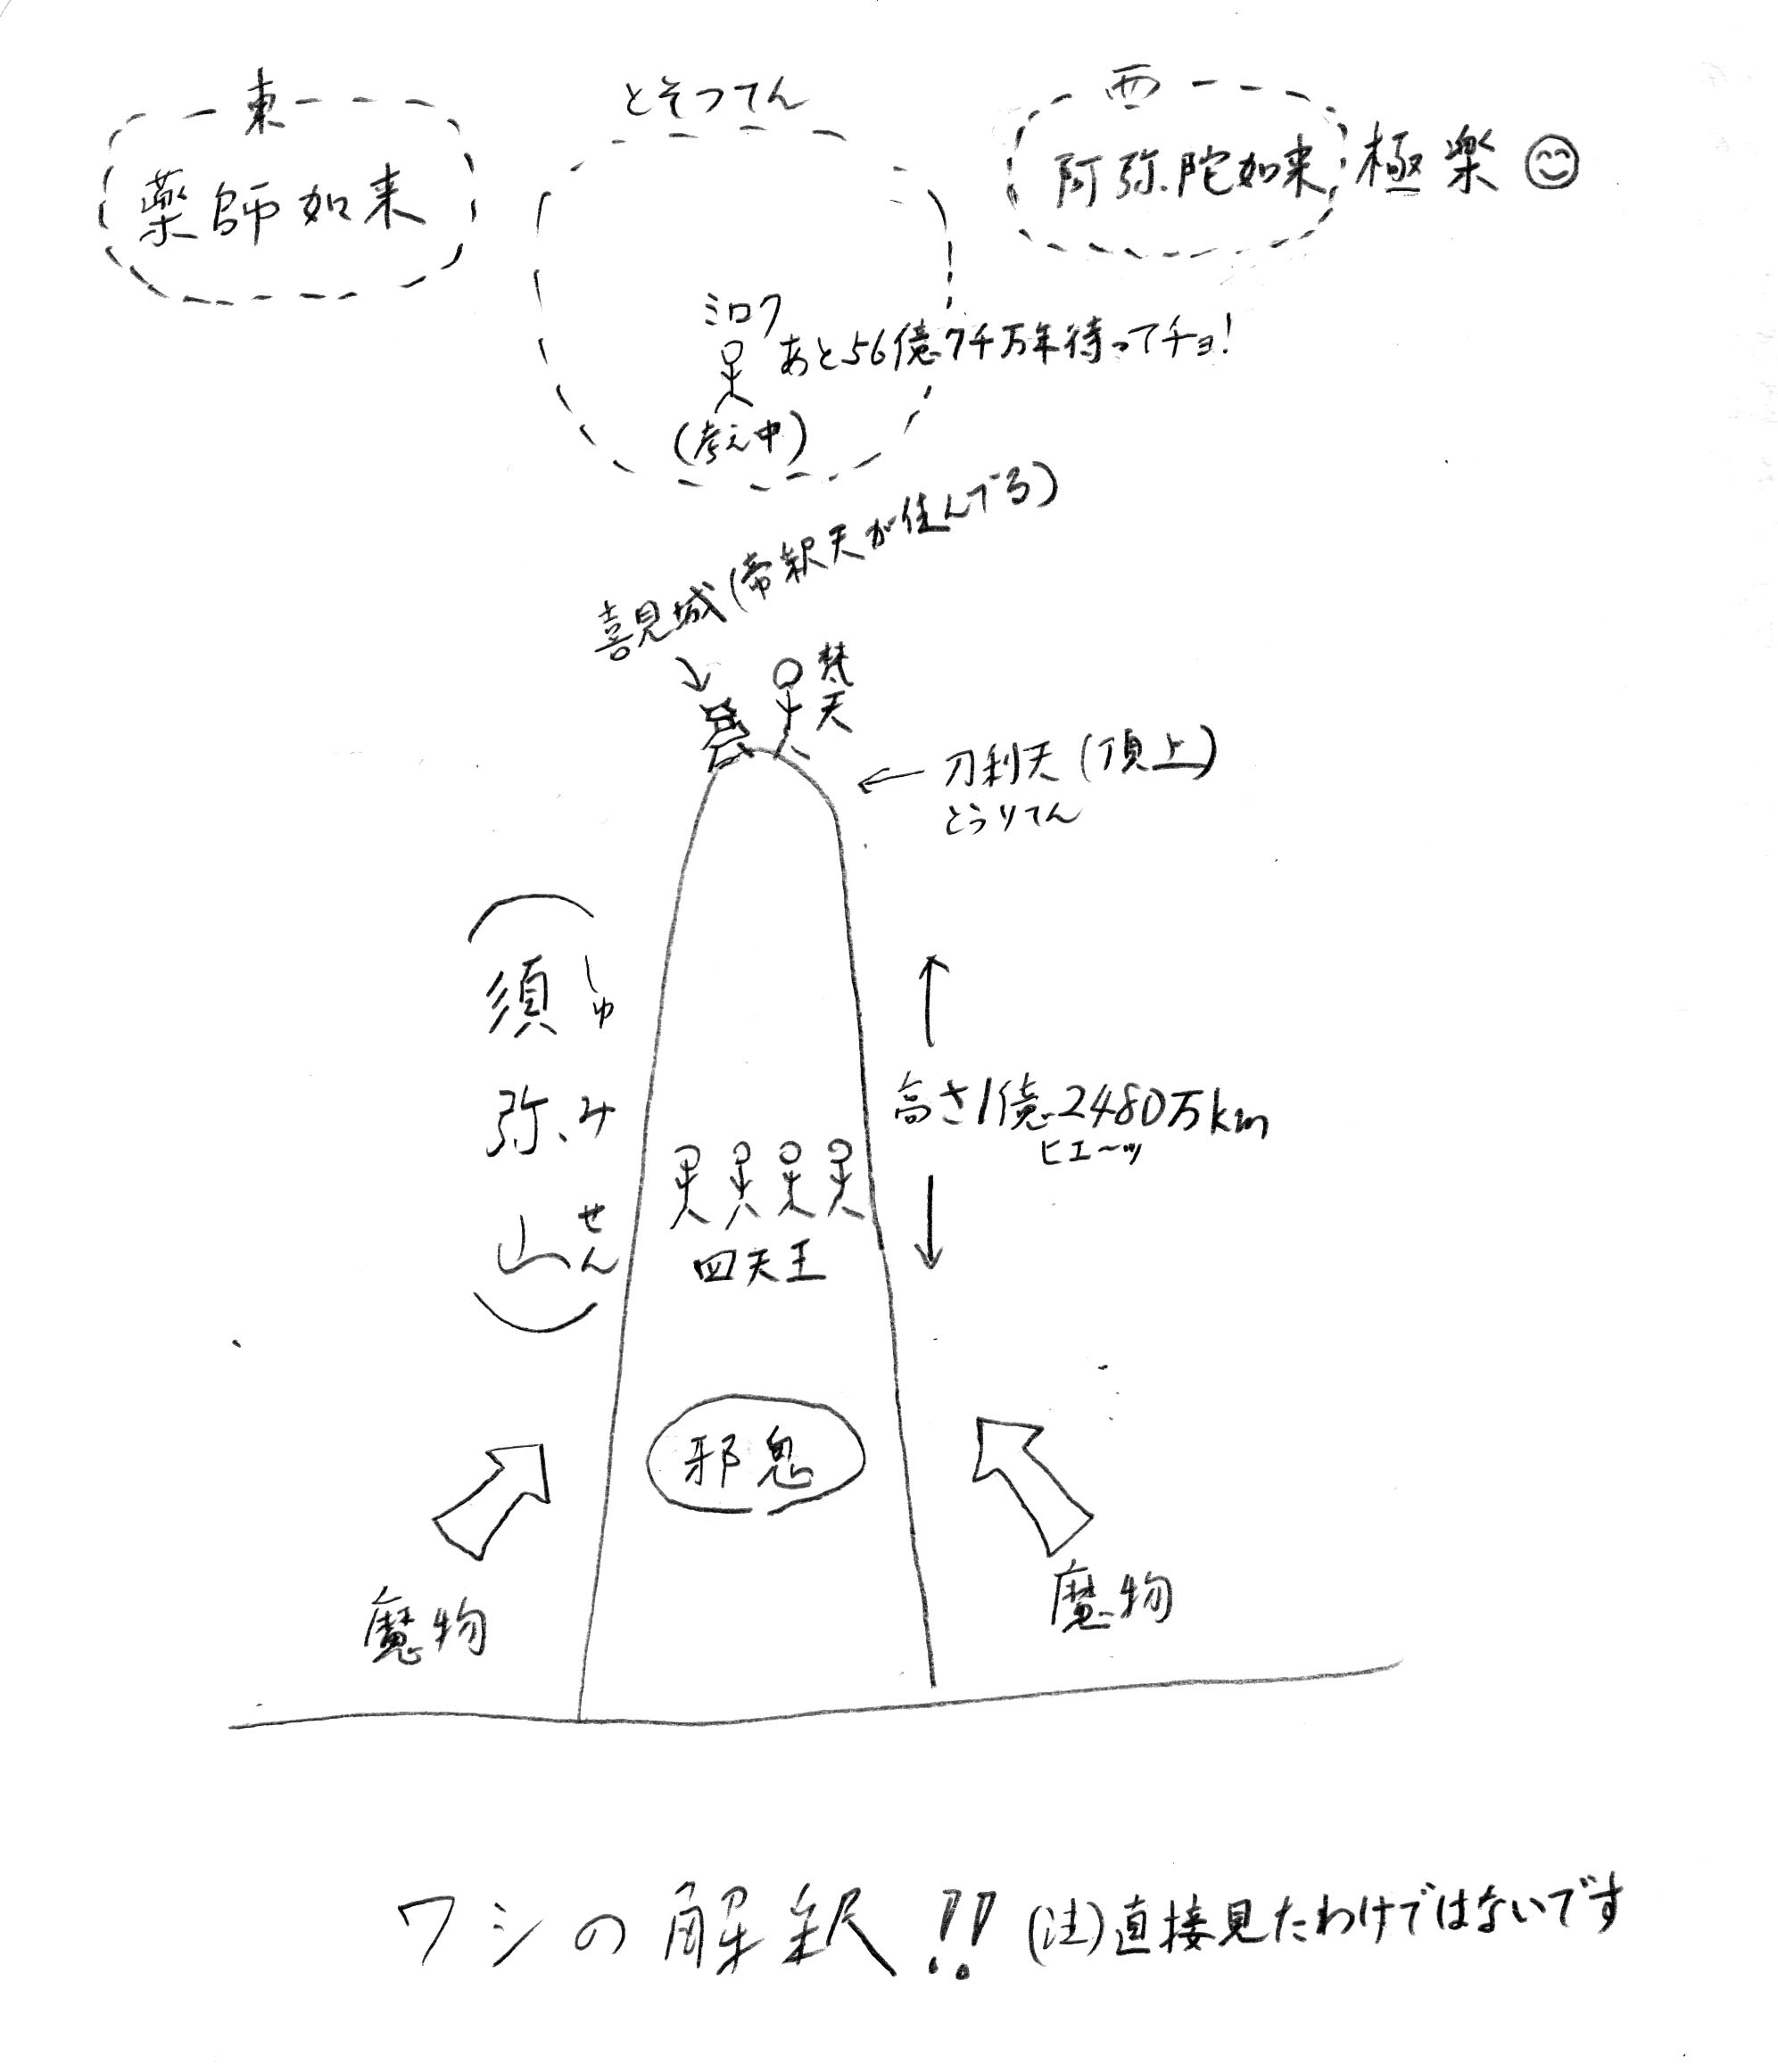 東
薬師如来
とそつてん
西
阿弥陀如来
極楽
ミロク
あと56億7千万年待ってチョ!
(考え中)
喜見城(帝釈天が住んでる)
梵天
刀利天(頂上)
とうりてん
須弥山
しゅみせん
高さ1億2480万km
ヒエーッ
四天王
邪鬼
魔物
魔物
ワシの解釈!! (注)直接見たわけではないです